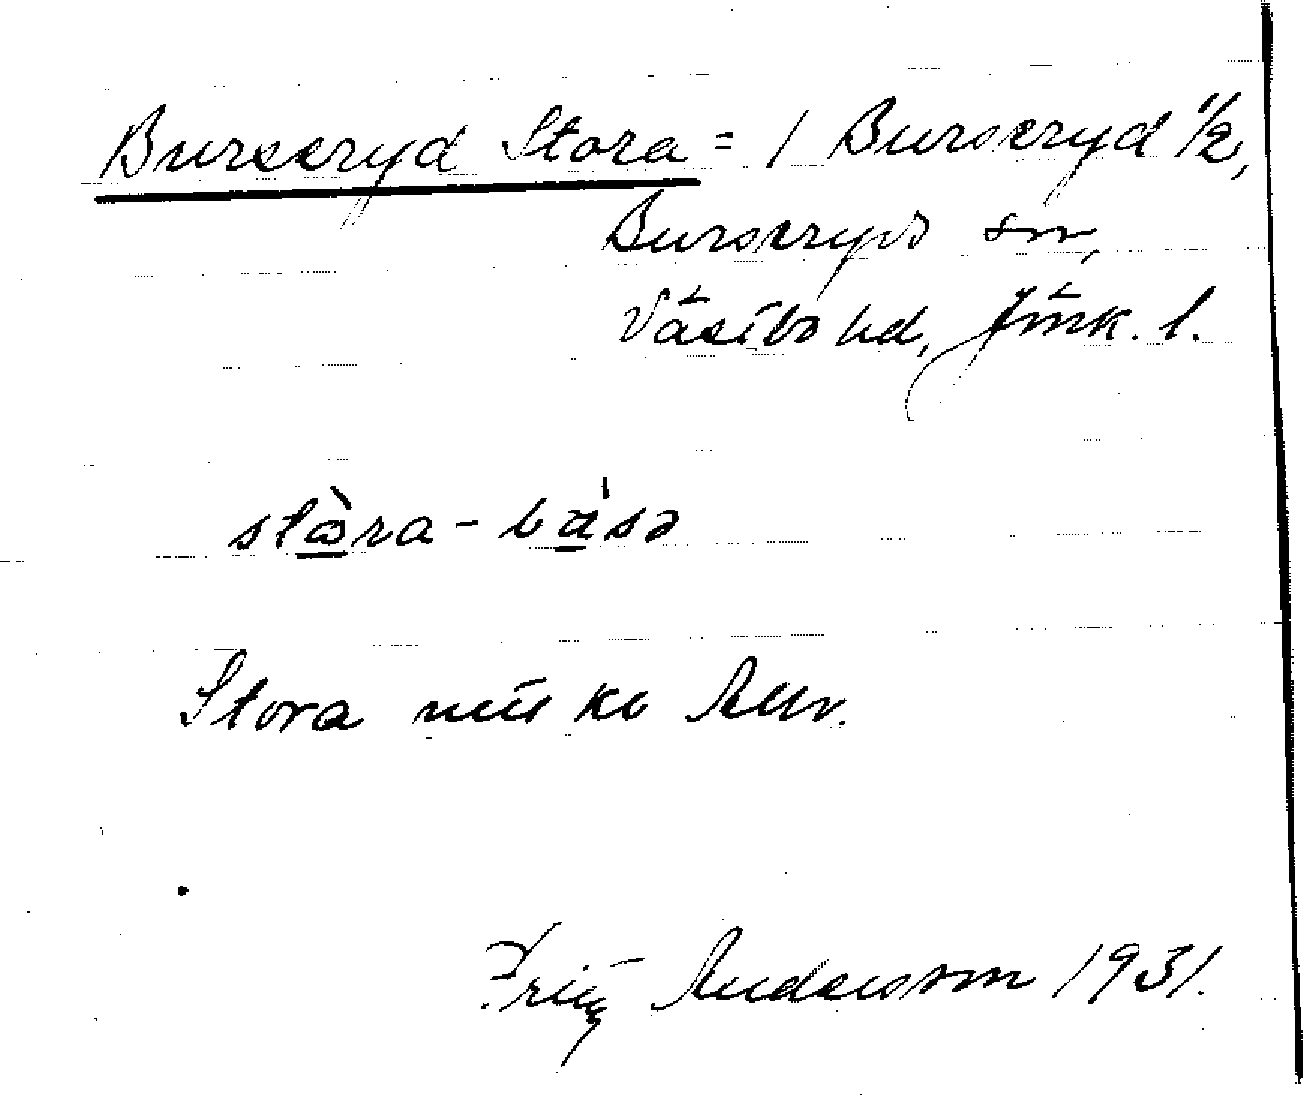 Burseryd Stora = 1 Burseryd 1/2,
Burseryds sn,
Västbo hd, Jönk. l.
stòra-båsə
Stora
Fritz Andersson 1931.